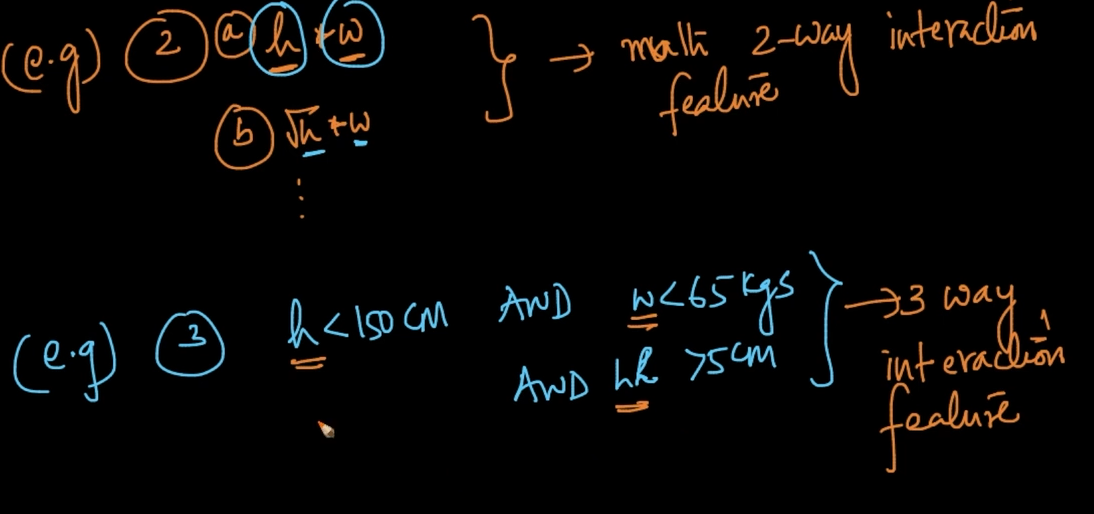 (e.g) 2 a h * w } → math 2-way interaction
feature
b √h * w
⋮
(e.g) 3 h < 150 cm AND w < 65 kgs } → 3 way
AND hl > 5 cm interaction
feature